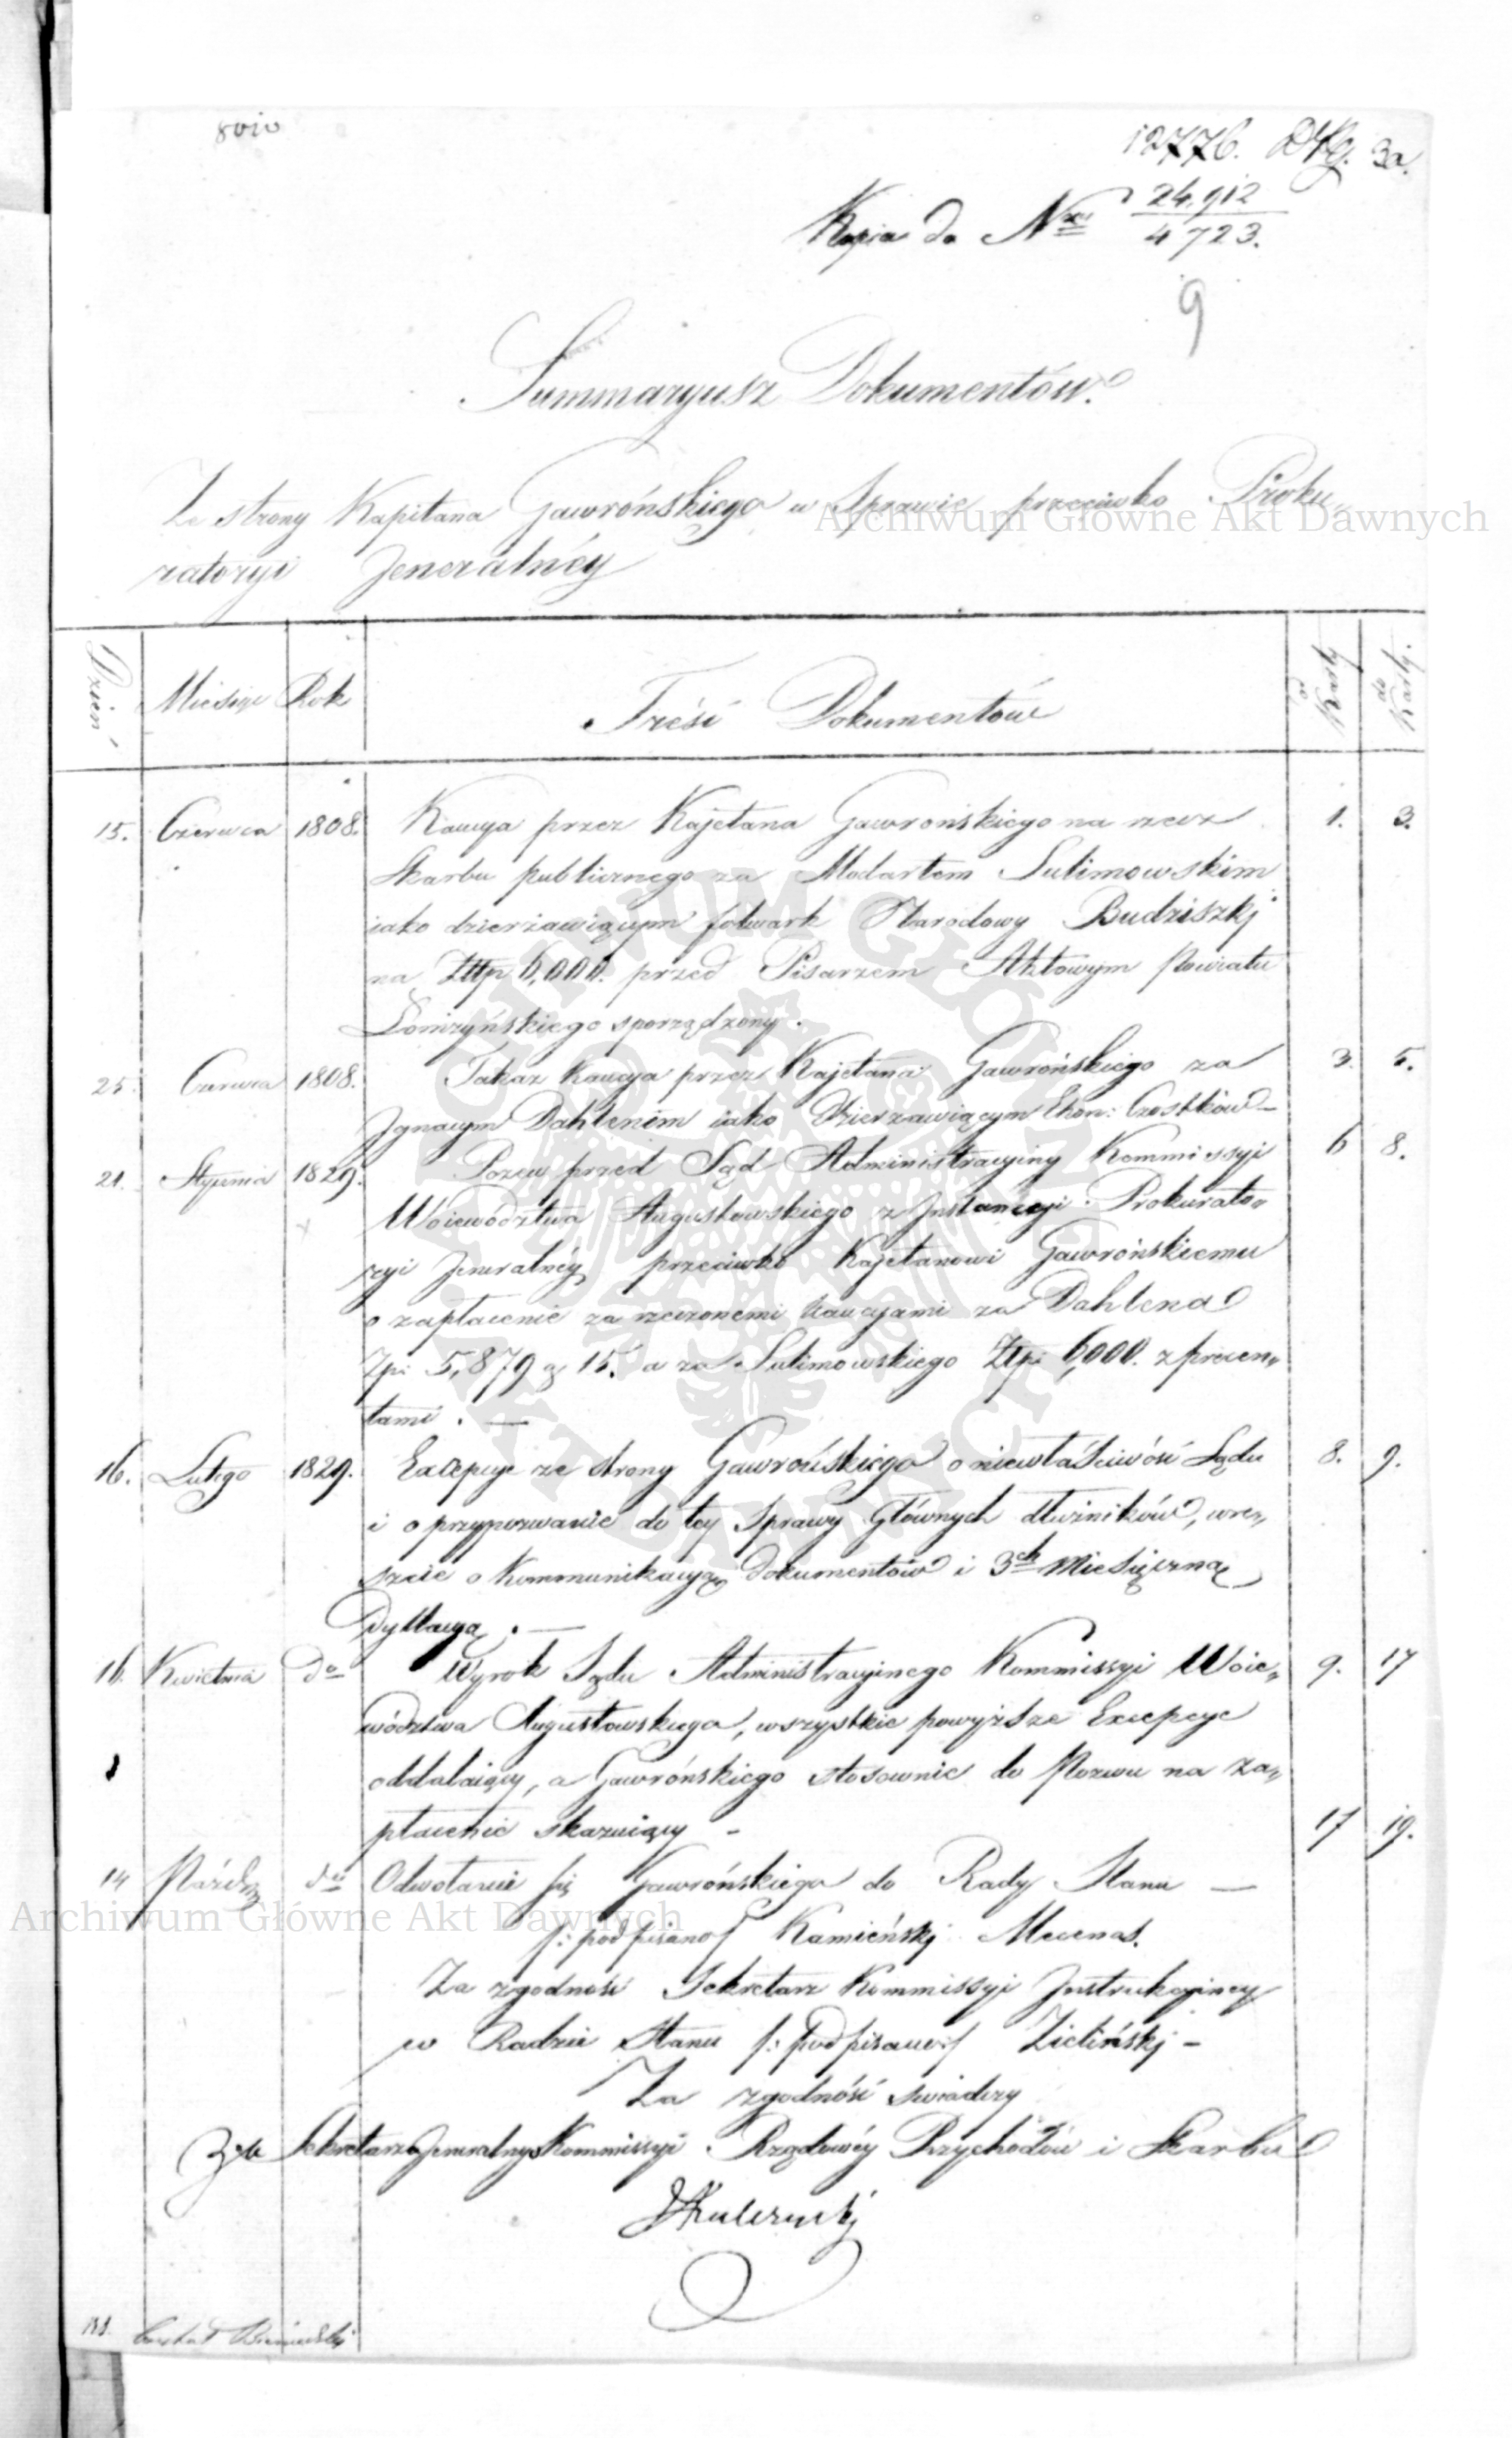 12776. 3a.
Kopia do Nru 24,912
4723.
9
Summaryusz Dokumentów.
Ze strony Kapitana Gawrońskiego w Sprawie przeciwko Proku„
ratoryi Jeneralnéy
Dzień Miesiąc Rok Treść Dokumentów od Karty do Karty.
15. Czerwca 1808. Kaucya przez Kajetana Gawrońskiego na rzecz 1. 3.
Skarbu publicznego za Modartem Sulimowskim
iako dzierzawiącym folwark Narodowy Budziszkj
na Złtp 6,000. przed Pisarzem Aktowym Powiatu
Łomżyńskiego sporządzony.
25. Czerwca 1808. Takaz Kaucya przez Kajetana Gawrońskiego za 3. 5.
Jgnacym Dahlenem iako Dzierzawiącym Ekon: Czostków –
21. Stycznia 1829. Pozew przed Sąd Administracyiny Kommissyi 6 8.
Woiewództwa Augustowskiego z Jnstancyi Prokurato„
ryi Jeneralnéy przeciwko Kajetanowi Gawrońskiemu
o zapłacenie za rzeczonemi kaucyami za Dahlena
Zpi 5,879 g 15. a za Sulimowskiego Złpi 6,000. z procen„
tami. —
16. Lutego 1829. Excepcye ze strony Gawrońskiego o niewłaściwość Sądu 8. 9.
i o przypozwanie do tey Sprawy Głównych dłużników, wre„
szcie o Kommunikacyą Dokumentów i 3ch Miesięczną
Dyllacyą. —
16. Kwietnia do Wyrok Sądu Administracyinego Kommissyi Woie„ 9. 17
wództwa Augustowskiego, wszystkie powyższe Excepcye
oddalaiący, a Gawrońskiego stosownie do Pozwu na za„
płacenie skazuiący –
14 Paźdz do Odwołanie się Gawrońskiego do Rady Stanu — 17 19.
/: podpisano / Kamieńskj Mecenas.
Za zgodność Sekretarz Kommissyi Jnstrukcyiney
w Radzie Stanu /: podpisano :/ Zielińskj –
Za zgodność świadczy
Sekretarza Jeneralnego Kommissyi Rządowéy Przychodów i Skarbu
Archiwum Główne Akt Dawnych
Archiwum Główne Akt Dawnych
ARCHIWUM GŁÓWNE AKT DAWNYCH